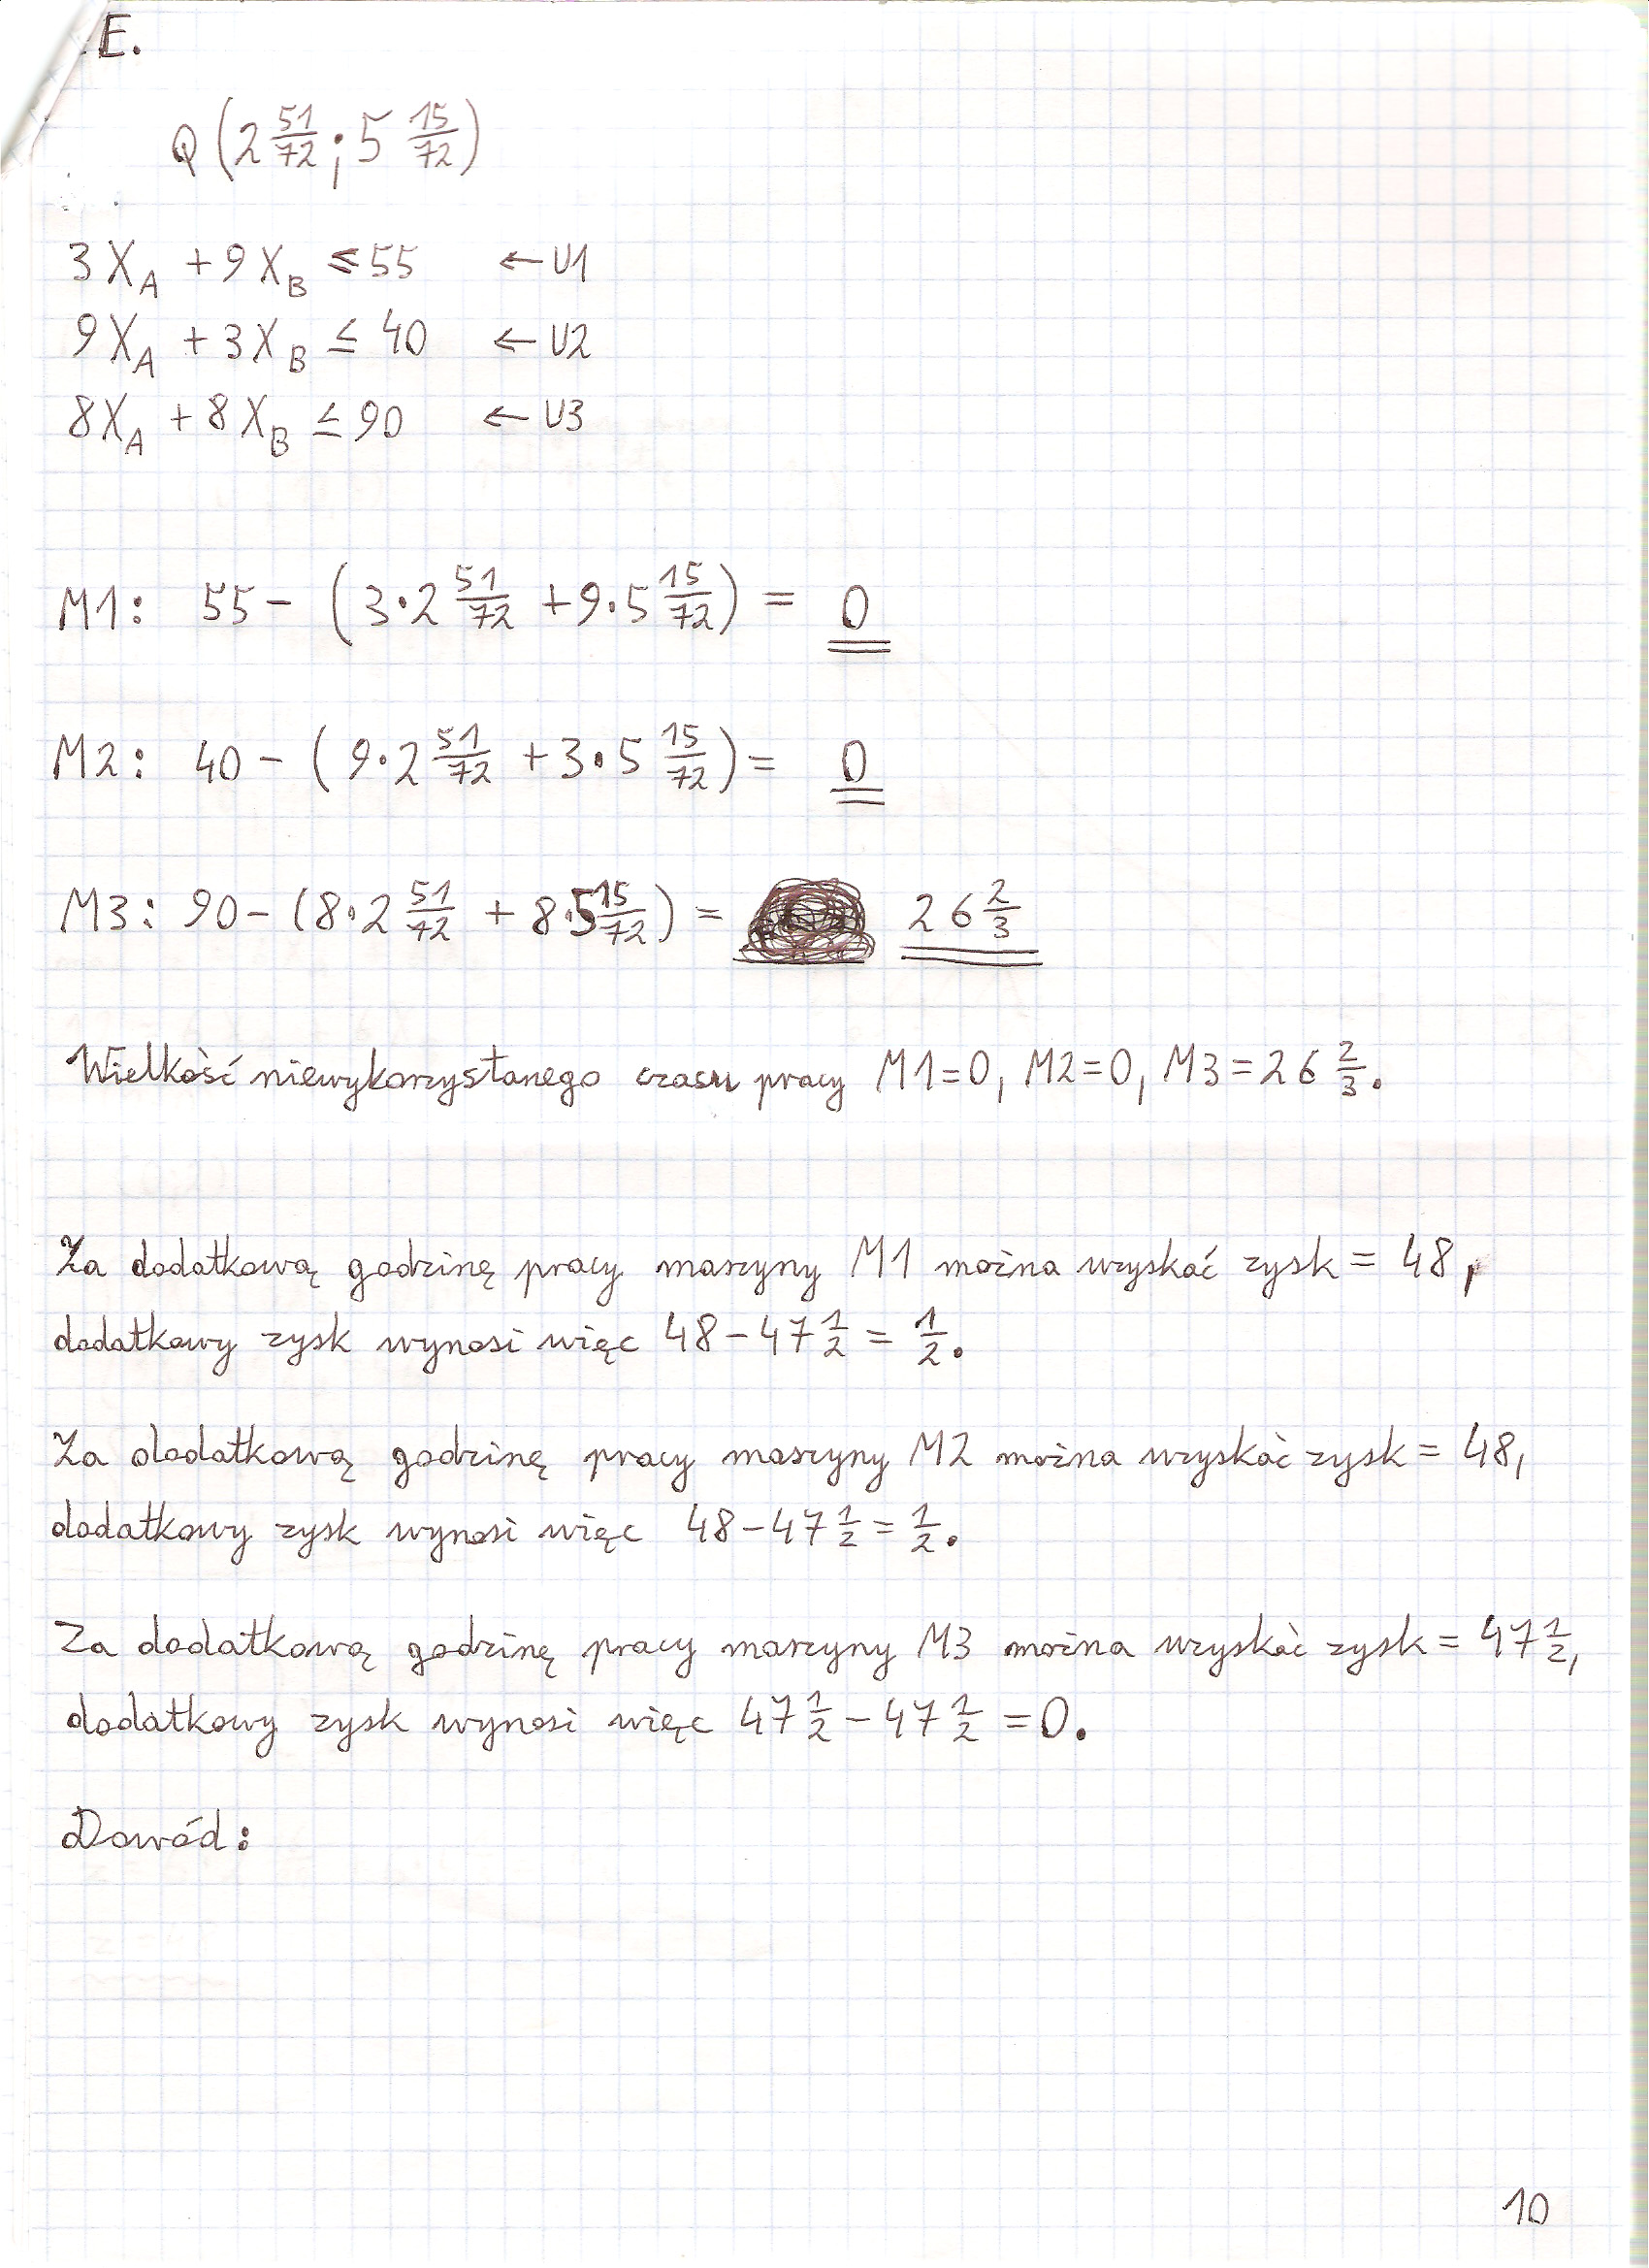 E.
Q (2 51/72 ; 5 15/72)
3X_A + 9X_B ≤ 55 ← U1
9X_A + 3X_B ≤ 40 ← U2
8X_A + 8X_B ≤ 90 ← U3
M1: 55 - (3·2 51/72 + 9·5 15/72) = 0
M2: 40 - (9·2 51/72 + 3·5 15/72) = 0
M3: 90 - (8·2 51/72 + 8·5 15/72) = 26 2/3
Wielkość niewykorzystanego czasu pracy M1=0, M2=0, M3=26 2/3.
Za dodatkową godzinę pracy maszyny M1 można uzyskać zysk = 48,
dodatkowy zysk wynosi więc 48 - 47 1/2 = 1/2.
Za dodatkową godzinę pracy maszyny M2 można uzyskać zysk = 48,
dodatkowy zysk wynosi więc 48 - 47 1/2 = 1/2.
Za dodatkową godzinę pracy maszyny M3 można uzyskać zysk = 47 1/2,
dodatkowy zysk wynosi więc 47 1/2 - 47 1/2 = 0.
Dowód:
10